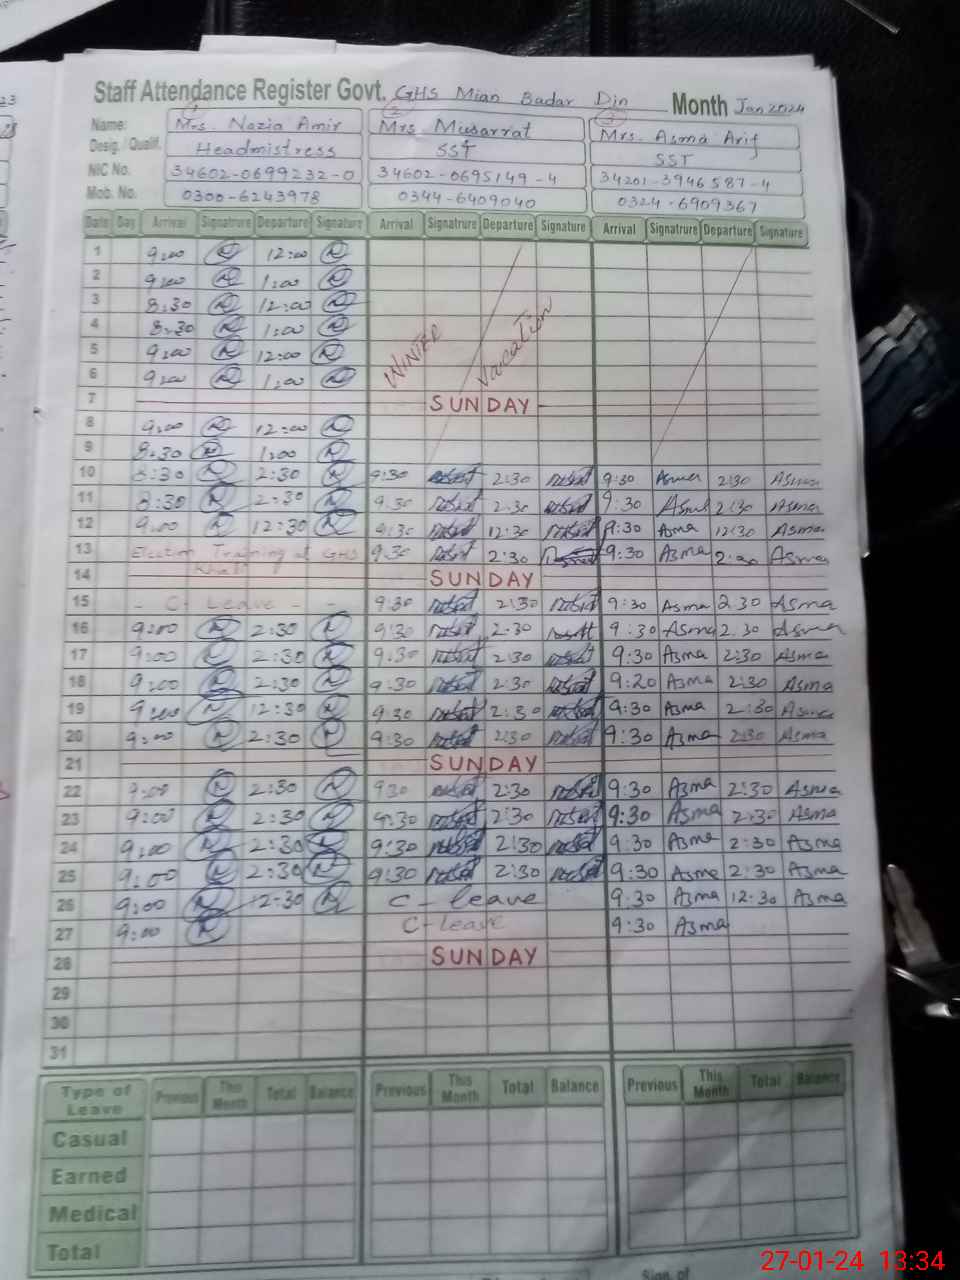 Staff Attendance Register Govt. GHS Mian Badar Din Month Jan 2024
Name: Mrs. Nazia Amir Mrs. Musarrat Mrs. Asma Arif
Desig. / Qualif. Headmistress SST SST
NIC No. 34602-0699232-0 34602-0695149-4 34201-3946587-4
Mob. No. 0300-6243978 0344-6409040 0324-6909367
Date Day Arrival Signatrure Departure Signature Arrival Signatrure Departure Signature Arrival Signatrure Departure Signature
1 9:00 N 12:00 N
2 9:00 N 1:00 N
3 8:30 N 12:00 N
4 8:30 N 1:00 N
5 9:00 N 12:00 N
6 9:00 N 1:00 N
WINTER Vacation
7 SUNDAY
8 9:00 N 12:00 N
9 8:30 N 1:00 N
10 8:30 N 2:30 N 9:30 2:30 9:30 Asma 2:30 Asma
11 8:30 N 2:30 N 9:30 2:30 9:30 Asma 2:30 Asma
12 9:00 N 12:30 N 9:30 12:30 9:30 Asma 12:30 Asma
13 Election Training at GHS 9:30 2:30 9:30 Asma Asma
14 SUNDAY
15 - C- Leave - - 9:30 2:30 9:30 Asma 2:30 Asma
16 9:00 N 2:30 N 9:30 2:30 9:30 Asma 2:30 Asma
17 9:00 N 2:30 N 9:30 2:30 9:30 Asma 2:30 Asma
18 9:00 N 2:30 N 9:30 2:30 9:20 Asma 2:30 Asma
19 9:00 N 12:30 N 9:30 2:30 9:30 Asma 2:30 Asma
20 9:00 N 2:30 N 9:30 2:30 9:30 Asma 2:30 Asma
21 SUNDAY
22 9:00 N 2:30 N 930 2:30 9:30 Asma 2:30 Asma
23 9:00 N 2:30 N 9:30 2:30 9:30 Asma 2:30 Asma
24 9:00 N 2:30 N 9:30 2:30 9:30 Asma 2:30 Asma
25 9:00 N 2:30 N 9:30 2:30 9:30 Asma 2:30 Asma
26 9:00 N 12-30 N C- leave 9:30 Asma 12:30 Asma
27 9:00 N C-leave 9:30 Asma
28 SUNDAY
29
30
31
Type of Leave Previous This Month Total Balance Previous This Month Total Balance Previous This Month Total Balance
Casual
Earned
Medical
Total
Sign. of
27-01-24 13:34